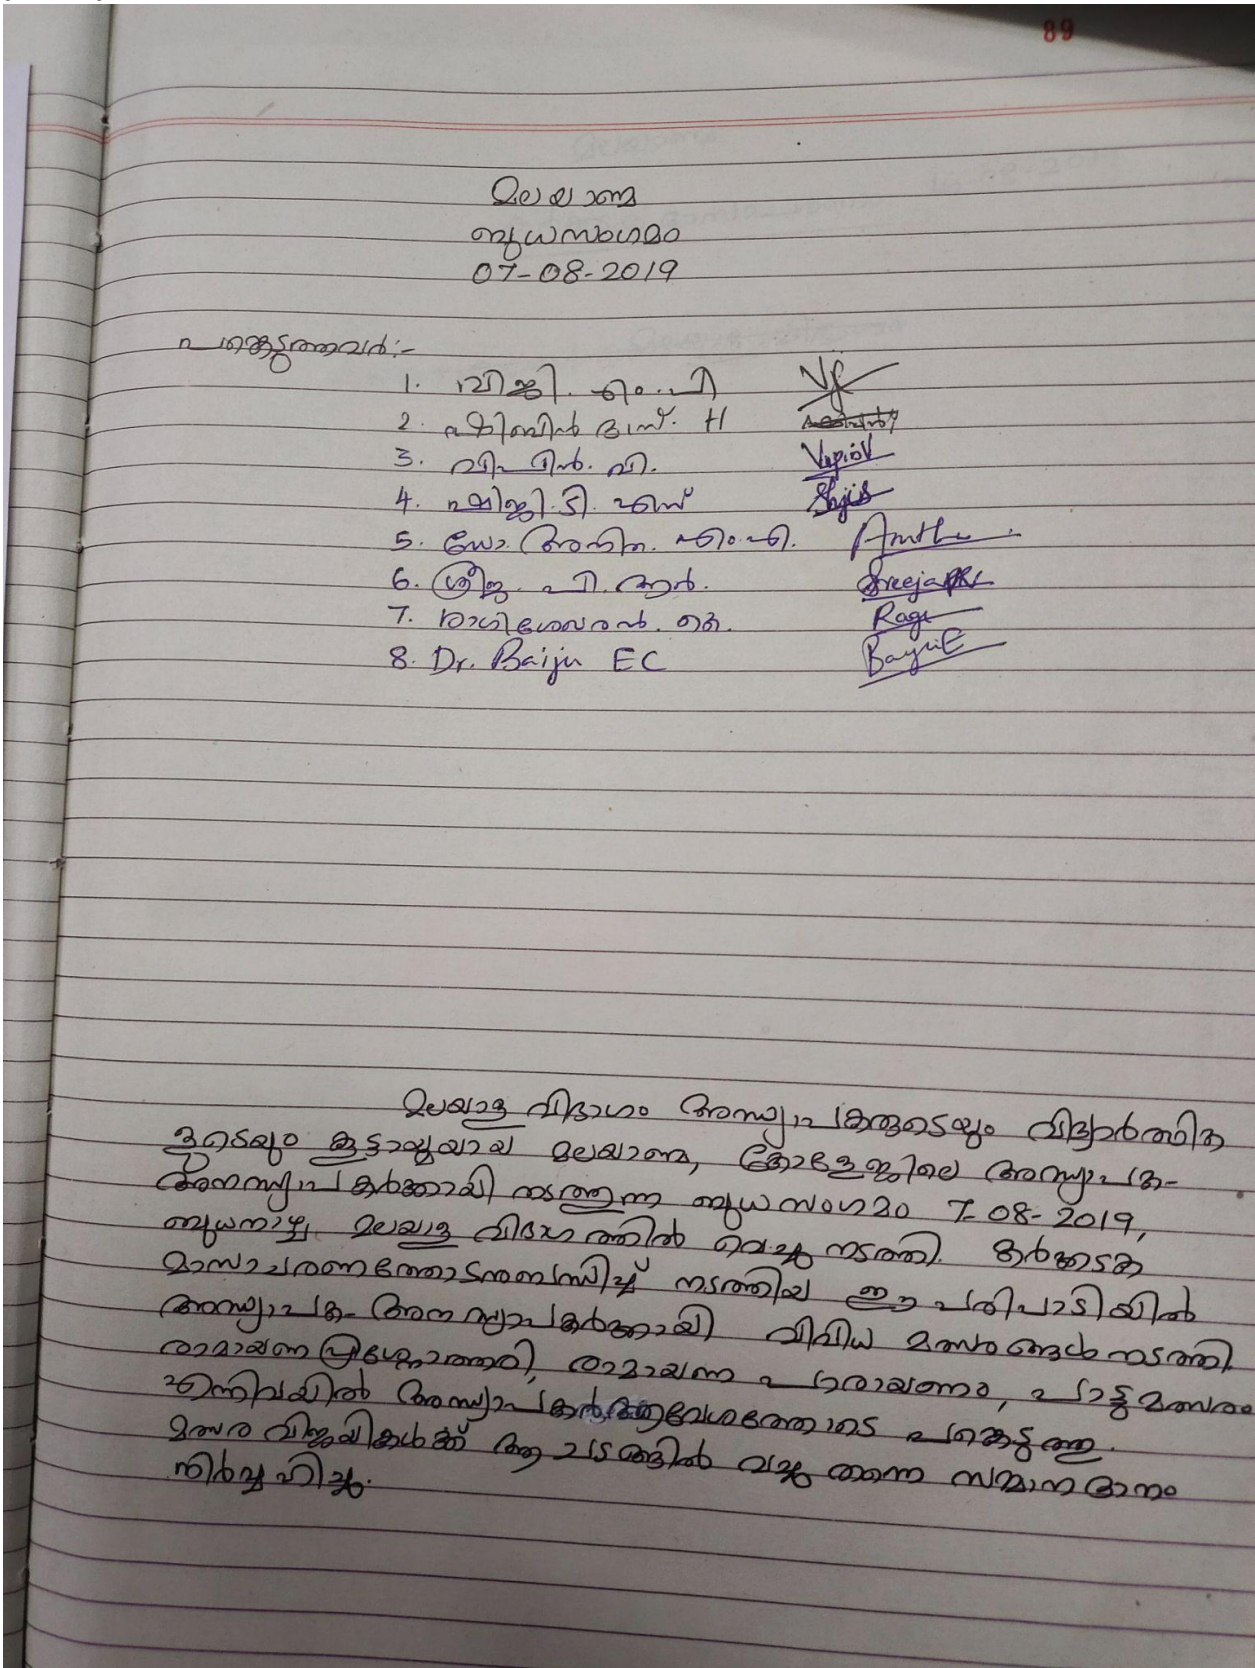 89
മലയാണ്മ
ബുധസംഗമം
07-08-2019
പങ്കെടുത്തവർ:-
1. വിജി. എം.പി
2. ഷിബിൻ ദാസ്. H
3. വിപിൻ. വി. Vipin V
4. ഷിജി. ടി. എസ് Shiji
5. ഡോ. അനിത. എം.പി. Anitha
6. ശ്രീജ. പി. ആർ. Sreeja PR
7. രാഗിശേഖരൻ. കെ. Rage
8. Dr. Baiju EC Baiju E
മലയാള വിഭാഗം അദ്ധ്യാപകരുടെയും വിദ്യാർത്ഥിക
ളുടെയും കൂട്ടായ്മയായ മലയാണ്മ, കോളേജിലെ അദ്ധ്യാപക-
അനദ്ധ്യാപകർക്കായി നടത്തുന്ന ബുധസംഗമം 7-08-2019,
ബുധനാഴ്ച മലയാള വിഭാഗത്തിൽ വെച്ചു നടത്തി. കർക്കടക
മാസാചരണത്തോടനുബന്ധിച്ച് നടത്തിയ ഈ പരിപാടിയിൽ
അദ്ധ്യാപക-അനദ്ധ്യാപകർക്കായി വിവിധ മത്സരങ്ങൾ നടത്തി.
രാമായണ പ്രശ്നോത്തരി, രാമായണ പാരായണം, പാട്ടുമത്സരം
എന്നിവയിൽ അദ്ധ്യാപകർ ആവേശത്തോടെ പങ്കെടുത്തു.
മത്സര വിജയികൾക്ക് ആ ചടങ്ങിൽ വച്ചു തന്നെ സമ്മാനദാനം
നിർവ്വഹിച്ചു.